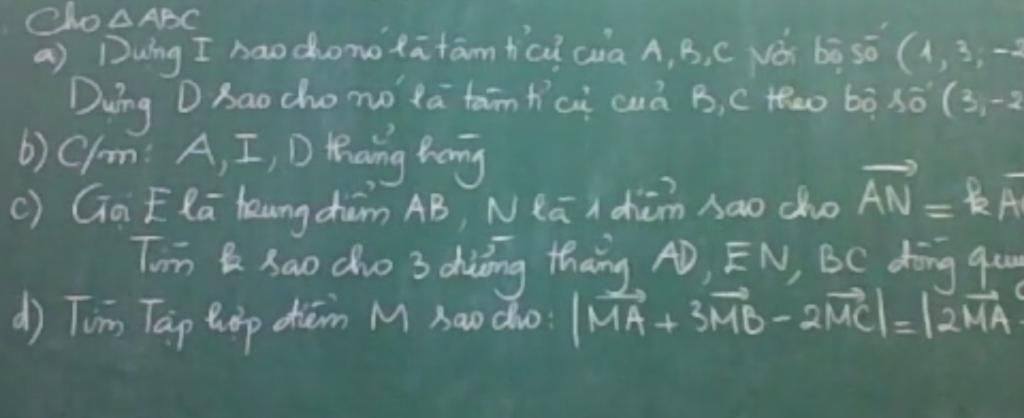 Cho △ABC
a) Dựng I sao cho nó là tâm tỉ cự của A, B, C với bộ số (1, 3, -2
Dựng D sao cho nó là tâm tỉ cự của B, C theo bộ số (3, -2
b) C/m: A, I, D thẳng hàng
c) Gọi E là trung điểm AB, N là 1 điểm sao cho $\overrightarrow{AN}$ = k
Tìm k sao cho 3 đường thẳng AD, EN, BC đồng
d) Tìm Tập hợp điểm M sao cho: |$\overrightarrow{MA}$ + 3$\overrightarrow{MB}$ - 2$\overrightarrow{MC}$| = |2$\overrightarrow{MA}$